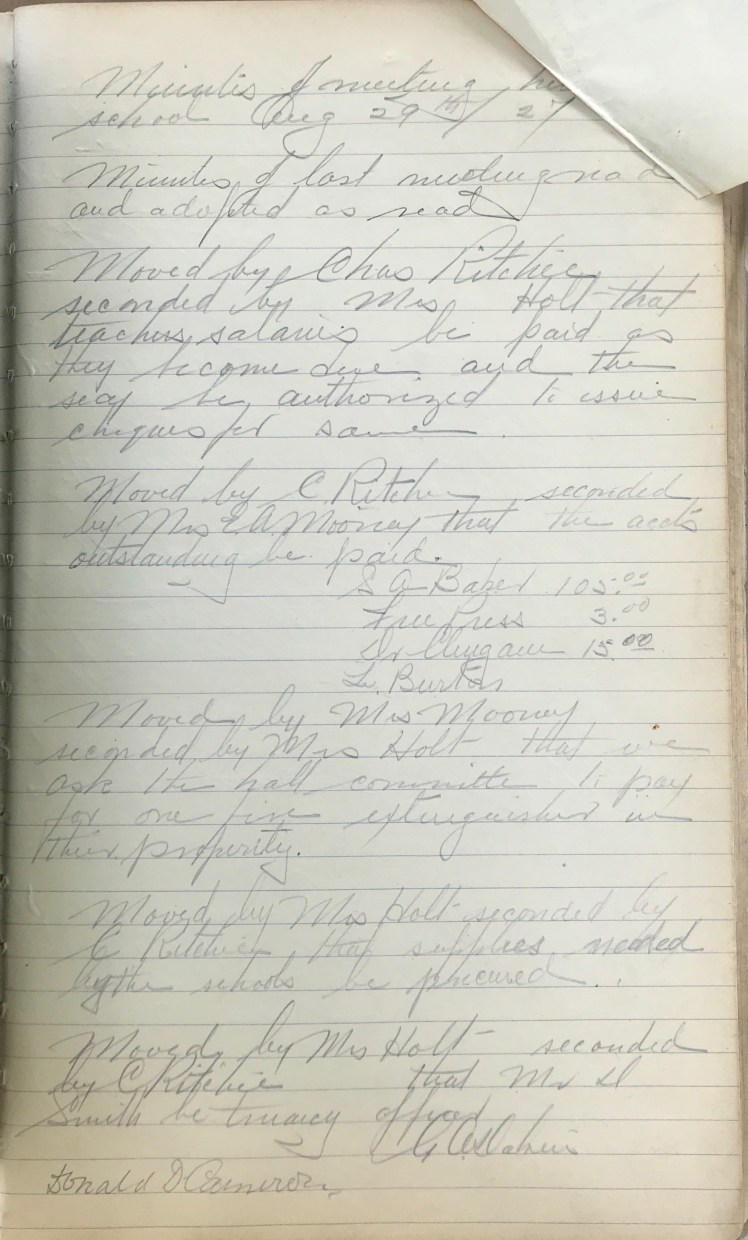 Minutes of meeting
school Aug 29th/27
Minutes of last meeting read
and adopted as read
Moved by Chas Ritchie
seconded by Mrs Holt that
teachers salaries be paid as
they become due and the
secy be authorized to issue
cheques for same.
Moved by C Ritchie seconded
by Mrs E A Mooney that the accts
outstanding be paid.
S A Baker 105.00
Free Press 3.00
Dr 15.00
L. Burton
Moved by Mrs Mooney
seconded by Mrs Holt that we
ask the hall committee to pay
for one fire extinguisher in
their property.
Moved by Mrs Holt seconded by
C Ritchie that supplies needed
by the schools be procured.
Moved by Mrs Holt seconded
by C Ritchie that Mr D
Smith be truancy officer
Donald D Cameron.